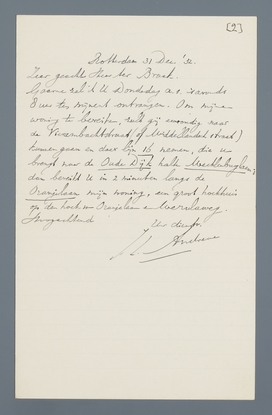 [2]
Rotterdam 31 Dec '32.
Zeer geachte Heer ter Braak.
Gaarne zal ik U Donderdag a.s. 's avonds
8 uur ten mijnent ontvangen. Om mijne
woning te bereiken, zult gij eenvoudig naar
de (of Middellandstraat)
kunnen gaan en daar lijn 16 nemen, die u
brengt naar de Oude Dijk halte Mecklenburglaan,
dan bereikt U in 2 minuten langs de
Oranjelaan mijn woning, een groot hoekhuis
op den hoek van Oranjelaan en
Hoogachtend
Uw dienstw.